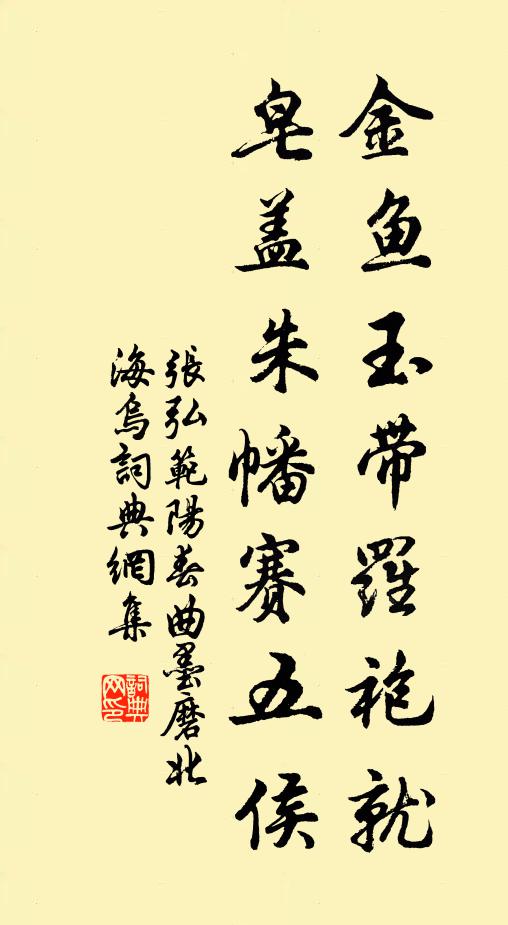 金鱼玉带羅袍就
皂盖朱幡賽五侯
張弘範陽春曲墨磨北
海烏詞典網集
詞典
网印